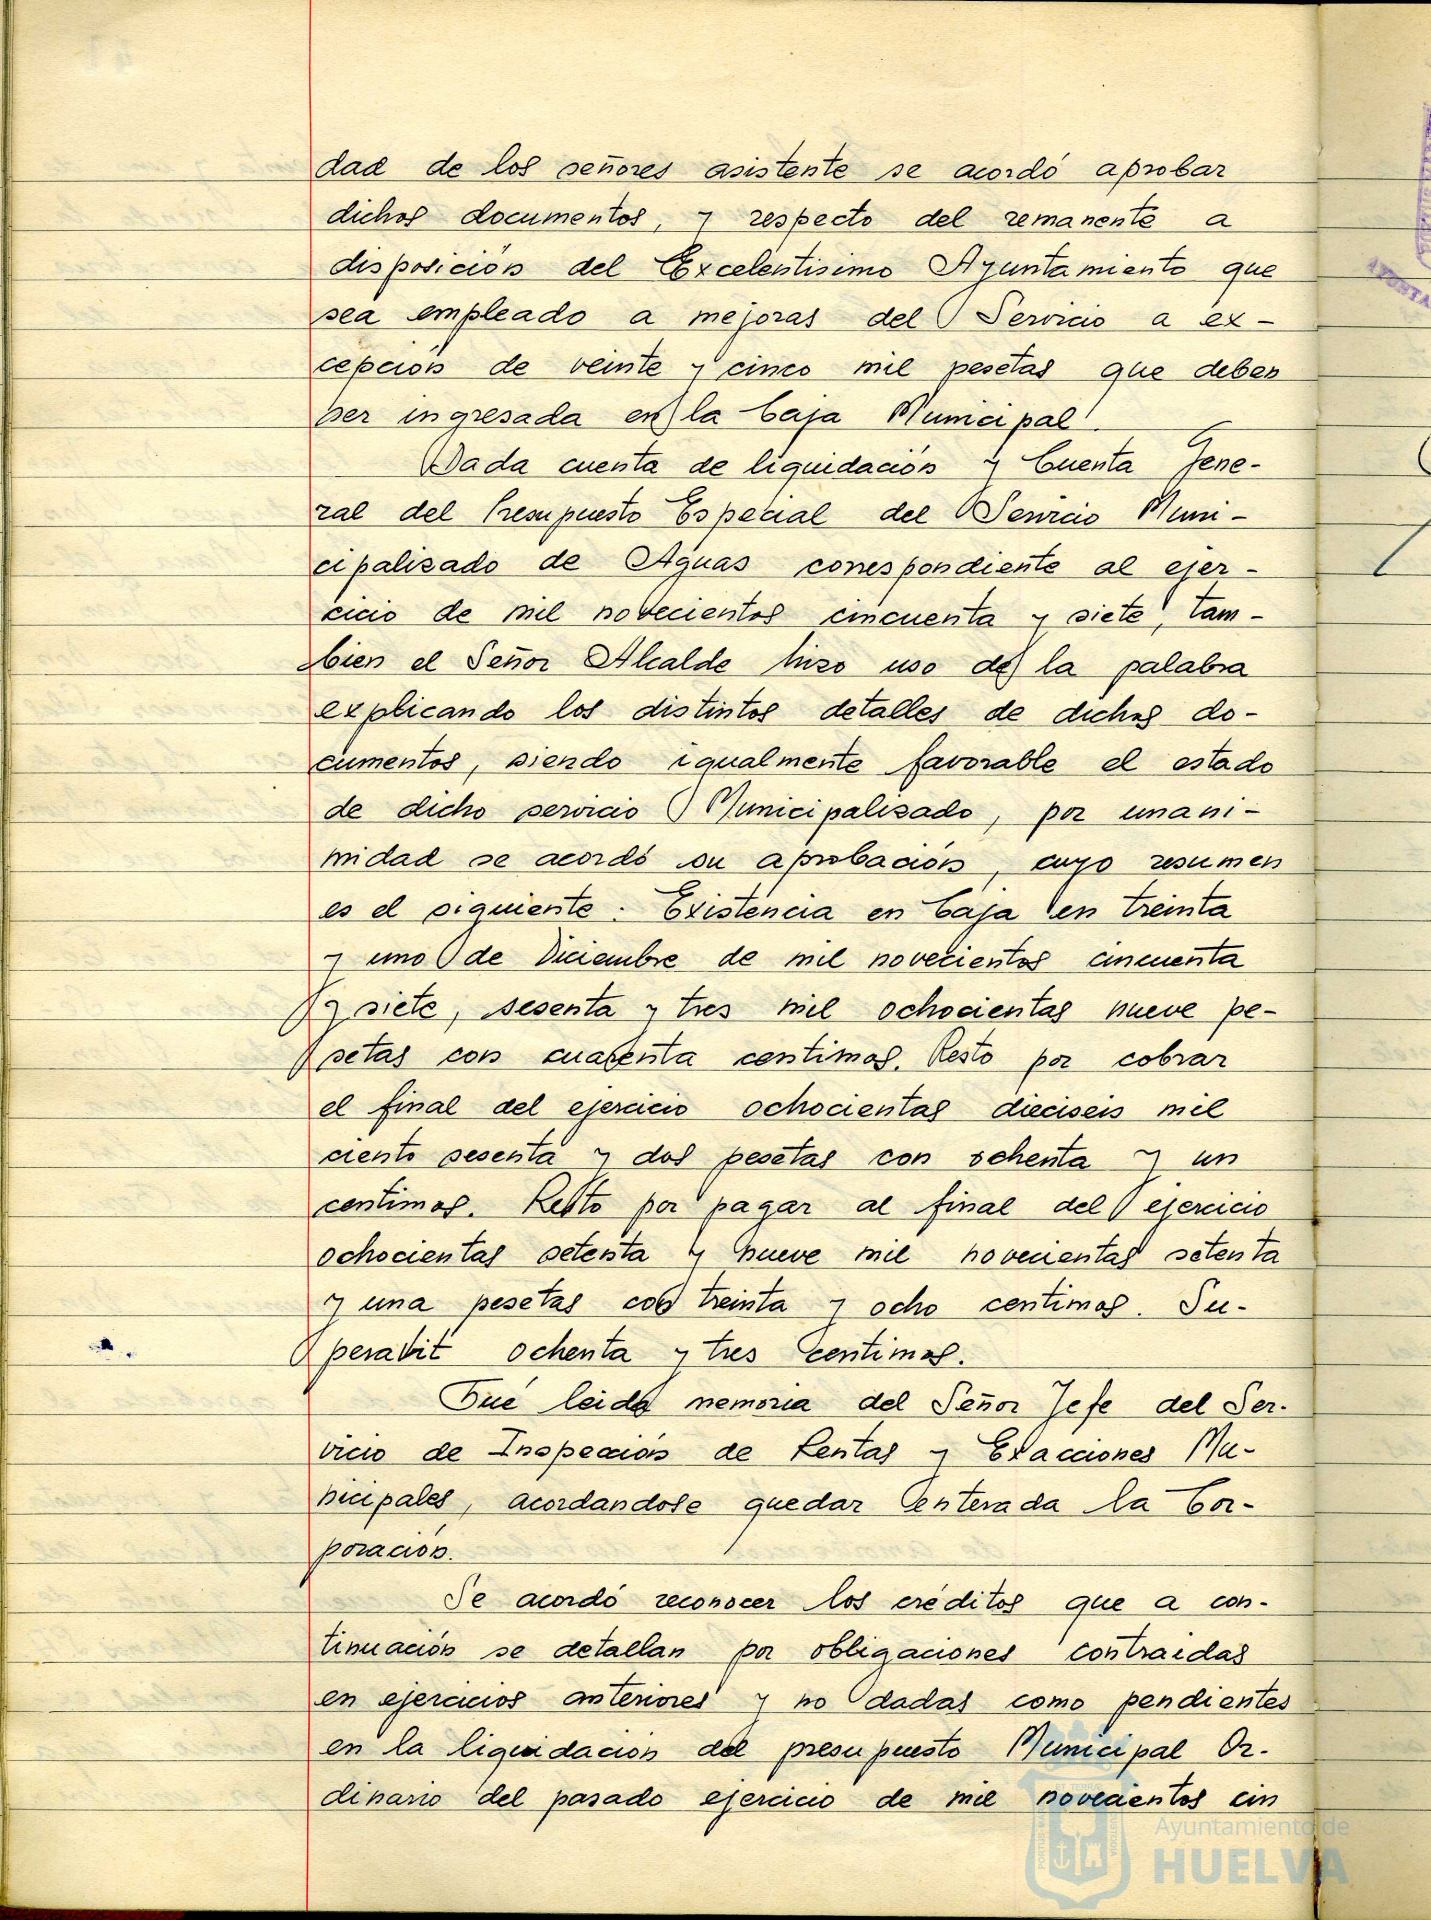 dad de los señores asistente se acordó aprobar
dichos documentos, y respecto del remanente a
disposición del Excelentisimo Ayuntamiento que
sea empleado a mejoras del Servicio a ex-
cepción de veinte y cinco mil pesetas que deben
ser ingresada en la Caja Municipal.
Dada cuenta de liquidación y Cuenta Gene-
ral del Presupuesto Especial del Servicio Muni-
cipalizado de Aguas correspondiente al ejer-
cicio de mil novecientos cincuenta y siete, tam-
bien el Señor Alcalde hizo uso de la palabra
explicando los distintos detalles de dichos do-
cumentos, siendo igualmente favorable el estado
de dicho servicio Municipalizado, por unani-
midad se acordó su aprobación, cuyo resumen
es el siguiente: Existencia en Caja en treinta
y uno de Diciembre de mil novecientos cincuenta
y siete, sesenta y tres mil ochocientas nueve pe-
setas con cuarenta centimos. Resto por cobrar
el final del ejercicio ochocientas dieciseis mil
ciento sesenta y dos pesetas con ochenta y un
centimos. Resto por pagar al final del ejercicio
ochocientas setenta y nueve mil novecientas setenta
y una pesetas con treinta y ocho centimos. Su-
peravit ochenta y tres centimos.
Fué leida memoria del Señor Jefe del Ser-
vicio de Inspección de Rentas y Exacciones Mu-
nicipales, acordandose quedar enterada la Cor-
poración.
Se acordó reconocer los créditos que a con-
tinuación se detallan por obligaciones contraidas
en ejercicios anteriores y no dadas como pendientes
en la liquidación del presupuesto Municipal Or-
dinario del pasado ejercicio de mil novecientos cin
Ayuntamiento de
HUELVA